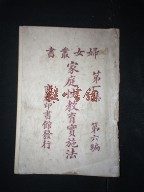 婦女叢書
第一集
第六編
家庭教育實施法
印書館發行